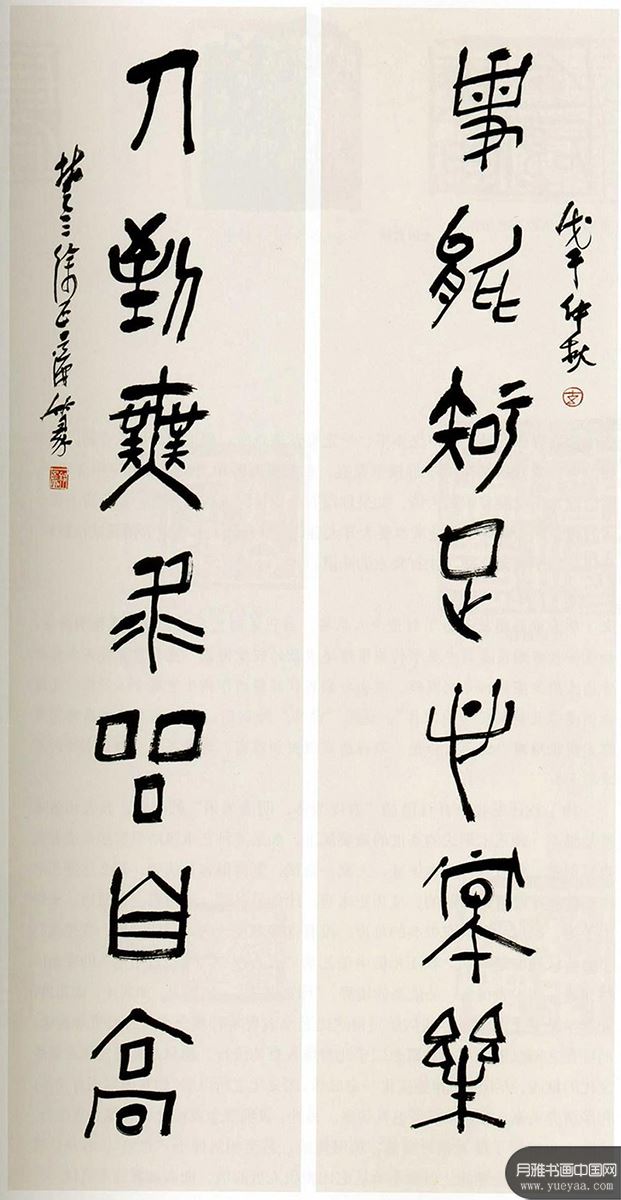 戊午仲秋
事能知足心常樂
人到無求品自高
楚三徐正濂篆
月雅书画中国网
www.yueyaa.com